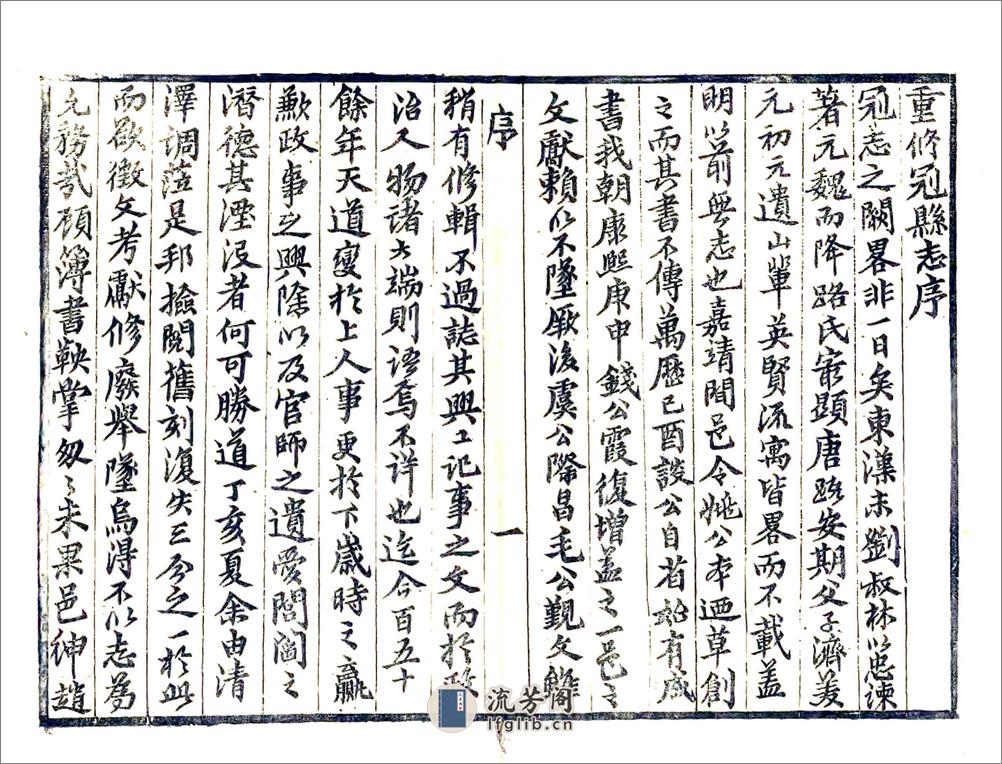 重修冠縣志序
冠志之闕畧非一日矣東漢末劉叔林以忠諫
著元魏而降路氏寔顯唐路安期父子濟美
元初元遺山輩英賢流寓皆畧而不載蓋
明以前無志也嘉靖間邑令姚公本迺草創
之而其書不傳萬歷己酉談公自省始有成
書我朝康熙庚申錢公霞復增益之一邑之
文獻賴以不墜厥後虞公際昌毛公覲文雖
序
一
稍有修輯不過誌其興工記事之文而於政
治人物諸大端則語焉不詳也迄今百五十
餘年天道變於上人事更於下歲時之贏
歉政事之興除以及官師之遺愛閭閻之
潛德其湮沒者何可勝道丁亥夏余由清
澤調蒞是邦撿閱舊刻復失三分之一於此
而欲徵文考獻修廢舉墜烏得不以志為
先務哉顧簿書鞅掌匆〻未果邑紳趙
流芳阁
lfglib.cn